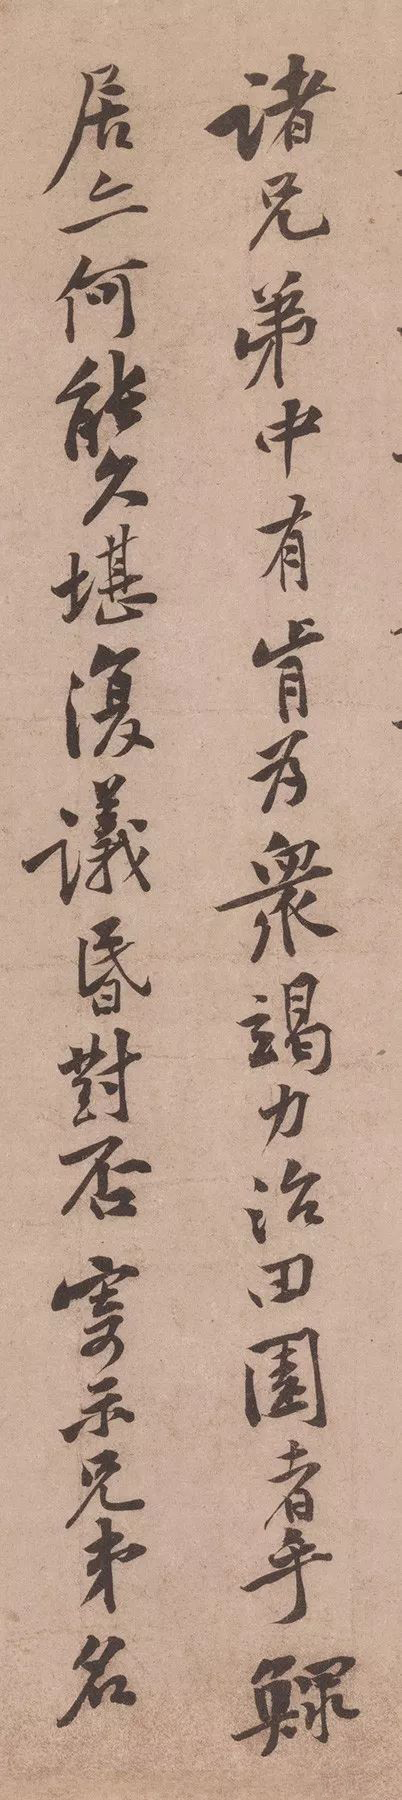 諸兄弟中有肯為衆竭力治田園者乎鰥
居亦何能久堪復議昏對否寄示兄弟名